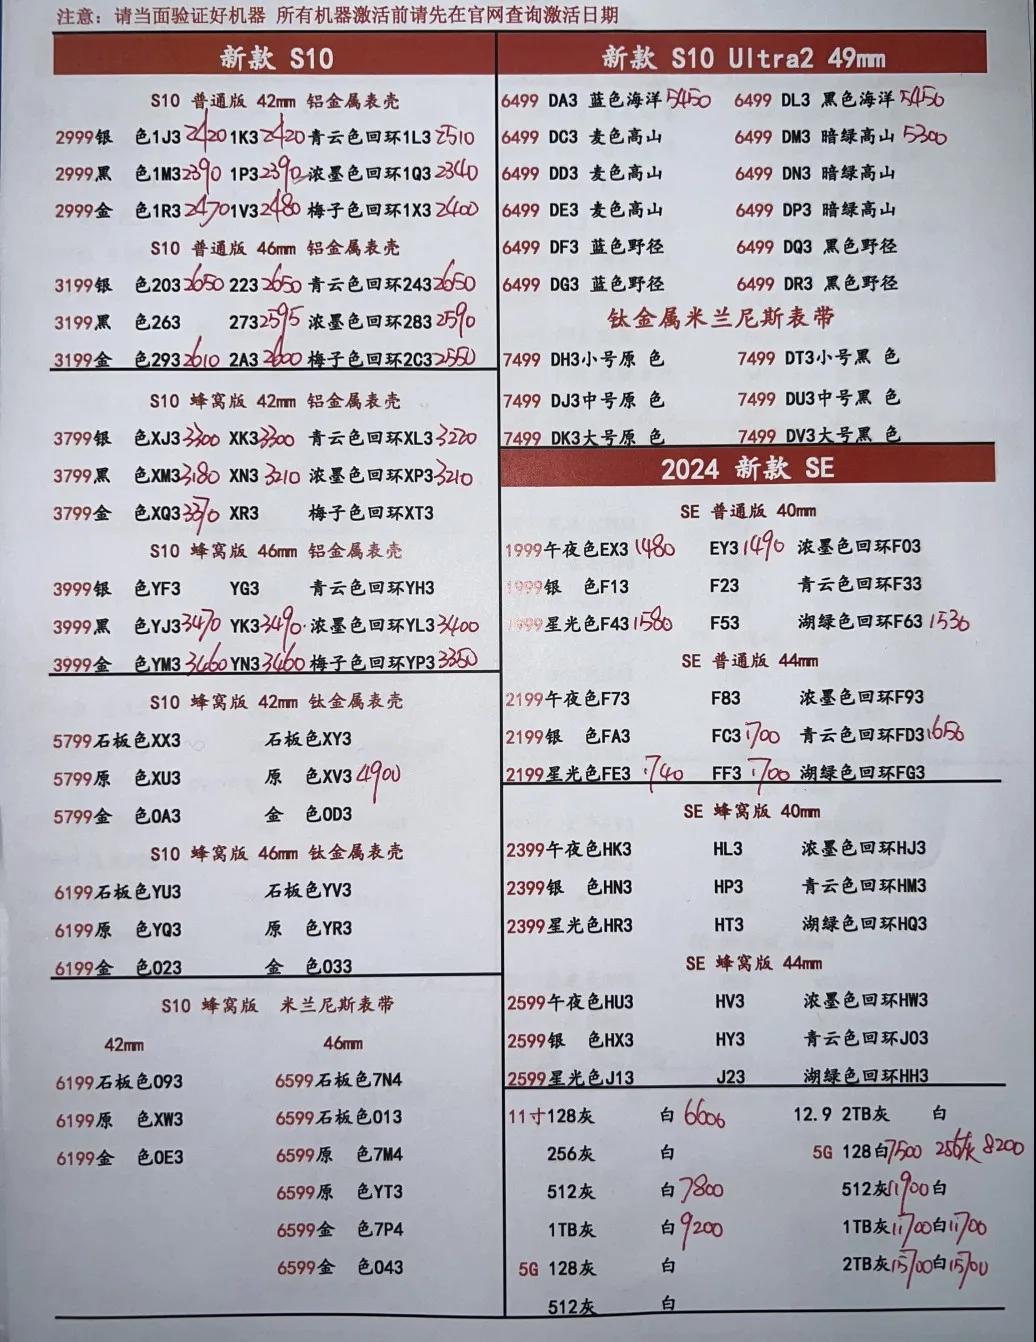 注意：请当面验证好机器 所有机器激活前请先在官网查询激活日期
新款 S10
S10 普通版 42mm 铝金属表壳
2999银 色1J3 2420 1K3 2420 青云色回环1L3 2510
2999黑 色1M3 2390 1P3 2390 浓墨色回环1Q3 2340
2999金 色1R3 2470 1V3 2480 梅子色回环1X3 2400
S10 普通版 46mm 铝金属表壳
3199银 色203 2650 223 2650 青云色回环243 2650
3199黑 色263 273 2595 浓墨色回环283 2590
3199金 色293 2610 2A3 2600 梅子色回环2C3 2550
S10 蜂窝版 42mm 铝金属表壳
3799银 色XJ3 3300 XK3 3300 青云色回环XL3 3220
3799黑 色XM3 3180 XN3 3210 浓墨色回环XP3 3210
3799金 色XQ3 3370 XR3 梅子色回环XT3
S10 蜂窝版 46mm 铝金属表壳
3999银 色YF3 YG3 青云色回环YH3
3999黑 色YJ3 3470 YK3 3490 浓墨色回环YL3 3400
3999金 色YM3 3460 YN3 3460 梅子色回环YP3 3350
S10 蜂窝版 42mm 钛金属表壳
5799石板色XX3 石板色XY3
5799原 色XU3 原 色XV3 4900
5799金 色0A3 金 色0D3
S10 蜂窝版 46mm 钛金属表壳
6199石板色YU3 石板色YV3
6199原 色YQ3 原 色YR3
6199金 色023 金 色033
S10 蜂窝版 米兰尼斯表带
42mm 46mm
6199石板色093 6599石板色7N4
6199原 色XW3 6599石板色013
6199金 色0E3 6599原 色7M4
6599原 色YT3
6599金 色7P4
6599金 色043
新款 S10 Ultra2 49mm
6499 DA3 蓝色海洋 5450 6499 DL3 黑色海洋 5450
6499 DC3 麦色高山 6499 DM3 暗绿高山 5300
6499 DD3 麦色高山 6499 DN3 暗绿高山
6499 DE3 麦色高山 6499 DP3 暗绿高山
6499 DF3 蓝色野径 6499 DQ3 黑色野径
6499 DG3 蓝色野径 6499 DR3 黑色野径
钛金属米兰尼斯表带
7499 DH3小号原 色 7499 DT3小号黑 色
7499 DJ3中号原 色 7499 DU3中号黑 色
7499 DK3大号原 色 7499 DV3大号黑 色
2024 新款 SE
SE 普通版 40mm
1999午夜色EX3 1480 EY3 1490 浓墨色回环F03
1999银 色F13 F23 青云色回环F33
1999星光色F43 1580 F53 湖绿色回环F63 1530
SE 普通版 44mm
2199午夜色F73 F83 浓墨色回环F93
2199银 色FA3 FC3 1700 青云色回环FD3 1650
2199星光色FE3 1740 FF3 1700 湖绿色回环FG3
SE 蜂窝版 40mm
2399午夜色HK3 HL3 浓墨色回环HJ3
2399银 色HN3 HP3 青云色回环HM3
2399星光色HR3 HT3 湖绿色回环HQ3
SE 蜂窝版 44mm
2599午夜色HU3 HV3 浓墨色回环HW3
2599银 色HX3 HY3 青云色回环J03
2599星光色J13 J23 湖绿色回环HH3
11寸128灰 白 6600 12.9 2TB灰 白
256灰 白 5G 128白7500 256灰 8200
512灰 白7800 512灰11900白
1TB灰 白9200 1TB灰11700白11700
5G 128灰 白 2TB灰15700白15700
512灰 白